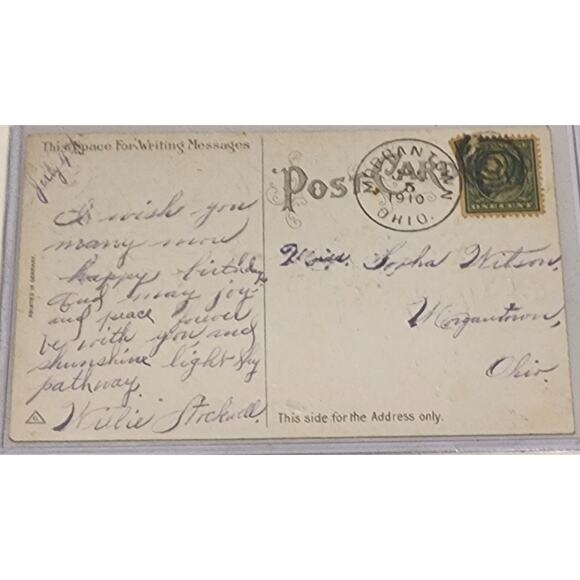 This Space For Writing Messages
July 4
I wish you
many more
happy birthdays
and may joy
and peace forever
be with you and
shunshine light thy
pathway.
Willie Stockwell.
PRINTED IN GERMANY.
POST CARD
MORGANTOWN
5
1910
OHIO.
ONE CENT
Miss. Sopha Witson,
Morgantown,
Ohio.
This side for the Address only.